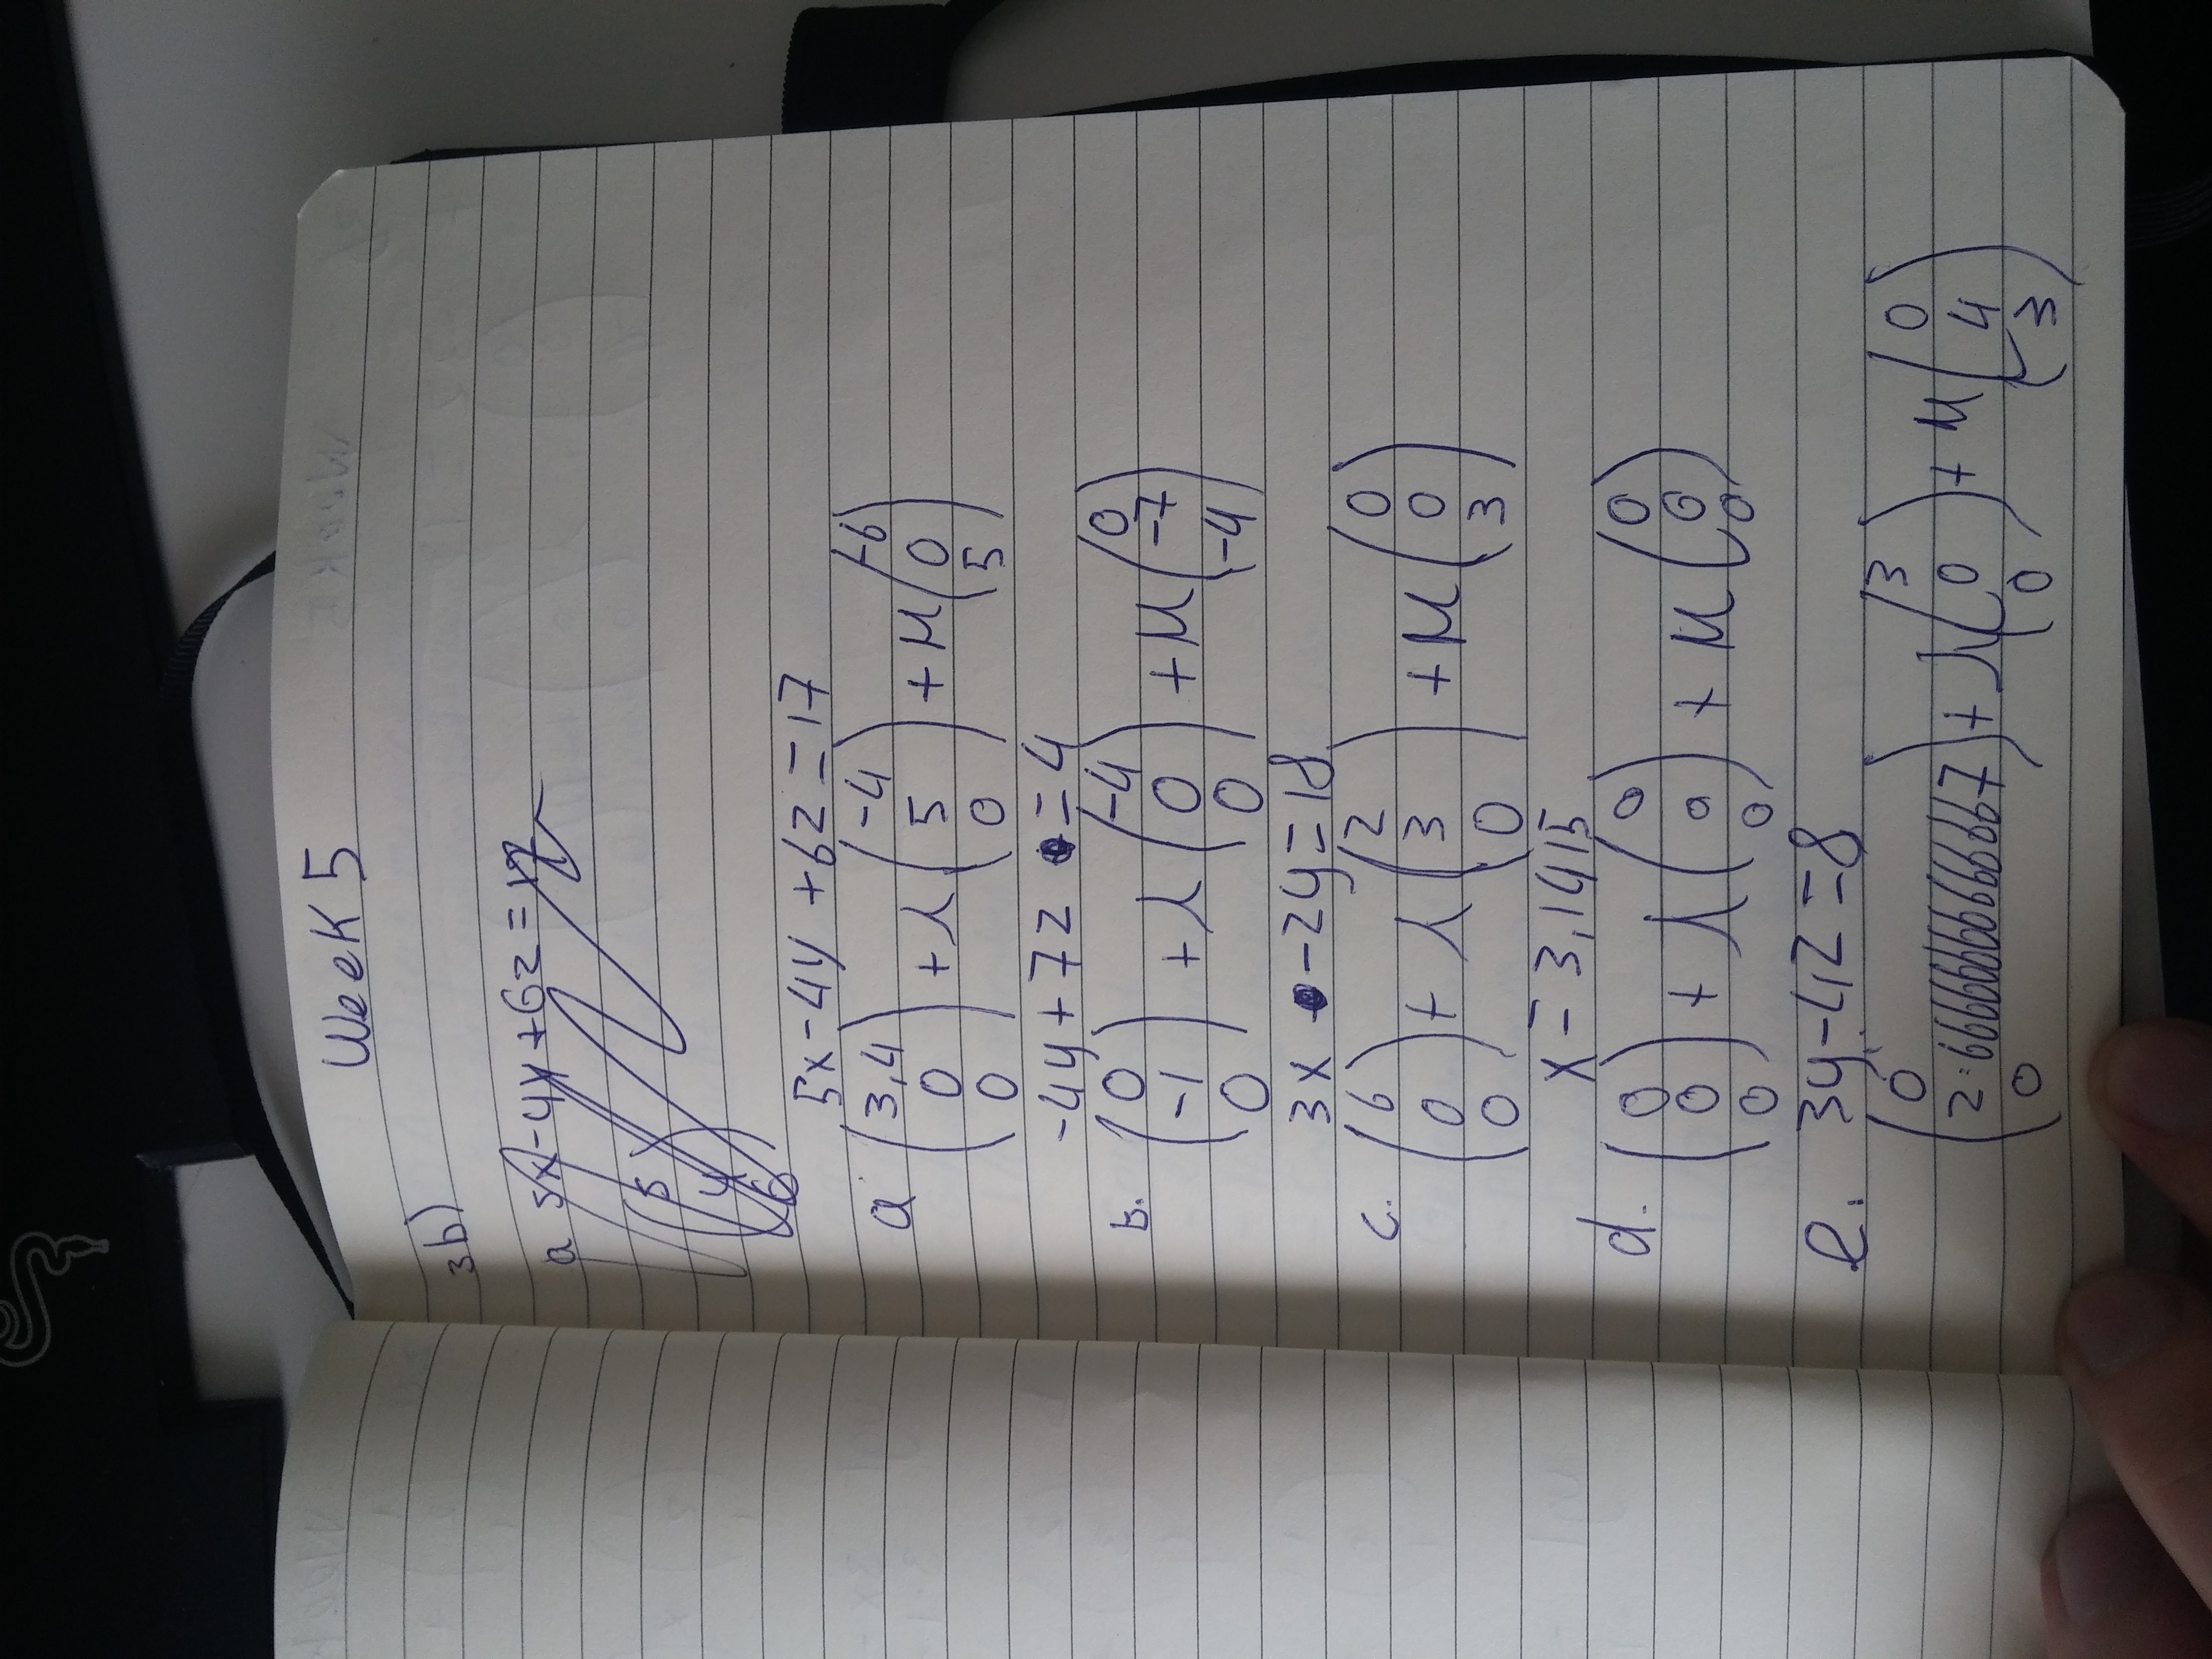 Week 5
3b)
a 5x-4y+6z=17
5
4
6
5x-4y+6z=17
a. (3,4 0 0) + λ (-4 5 0) + μ (-6 0 5)
-4y+7z=4
b. (0 -1 0) + λ (-4 0 0) + μ (0 -7 -4)
3x-2y=18
c. (6 0 0) + λ (2 3 0) + μ (0 0 3)
x=3,1415
d. (0 0 0) + λ (0 0 0) + μ (0 0 0)
e. 3y-4z=8
(0 2.6666666666666667 0) + λ (3 0 0) + μ (0 4 3)